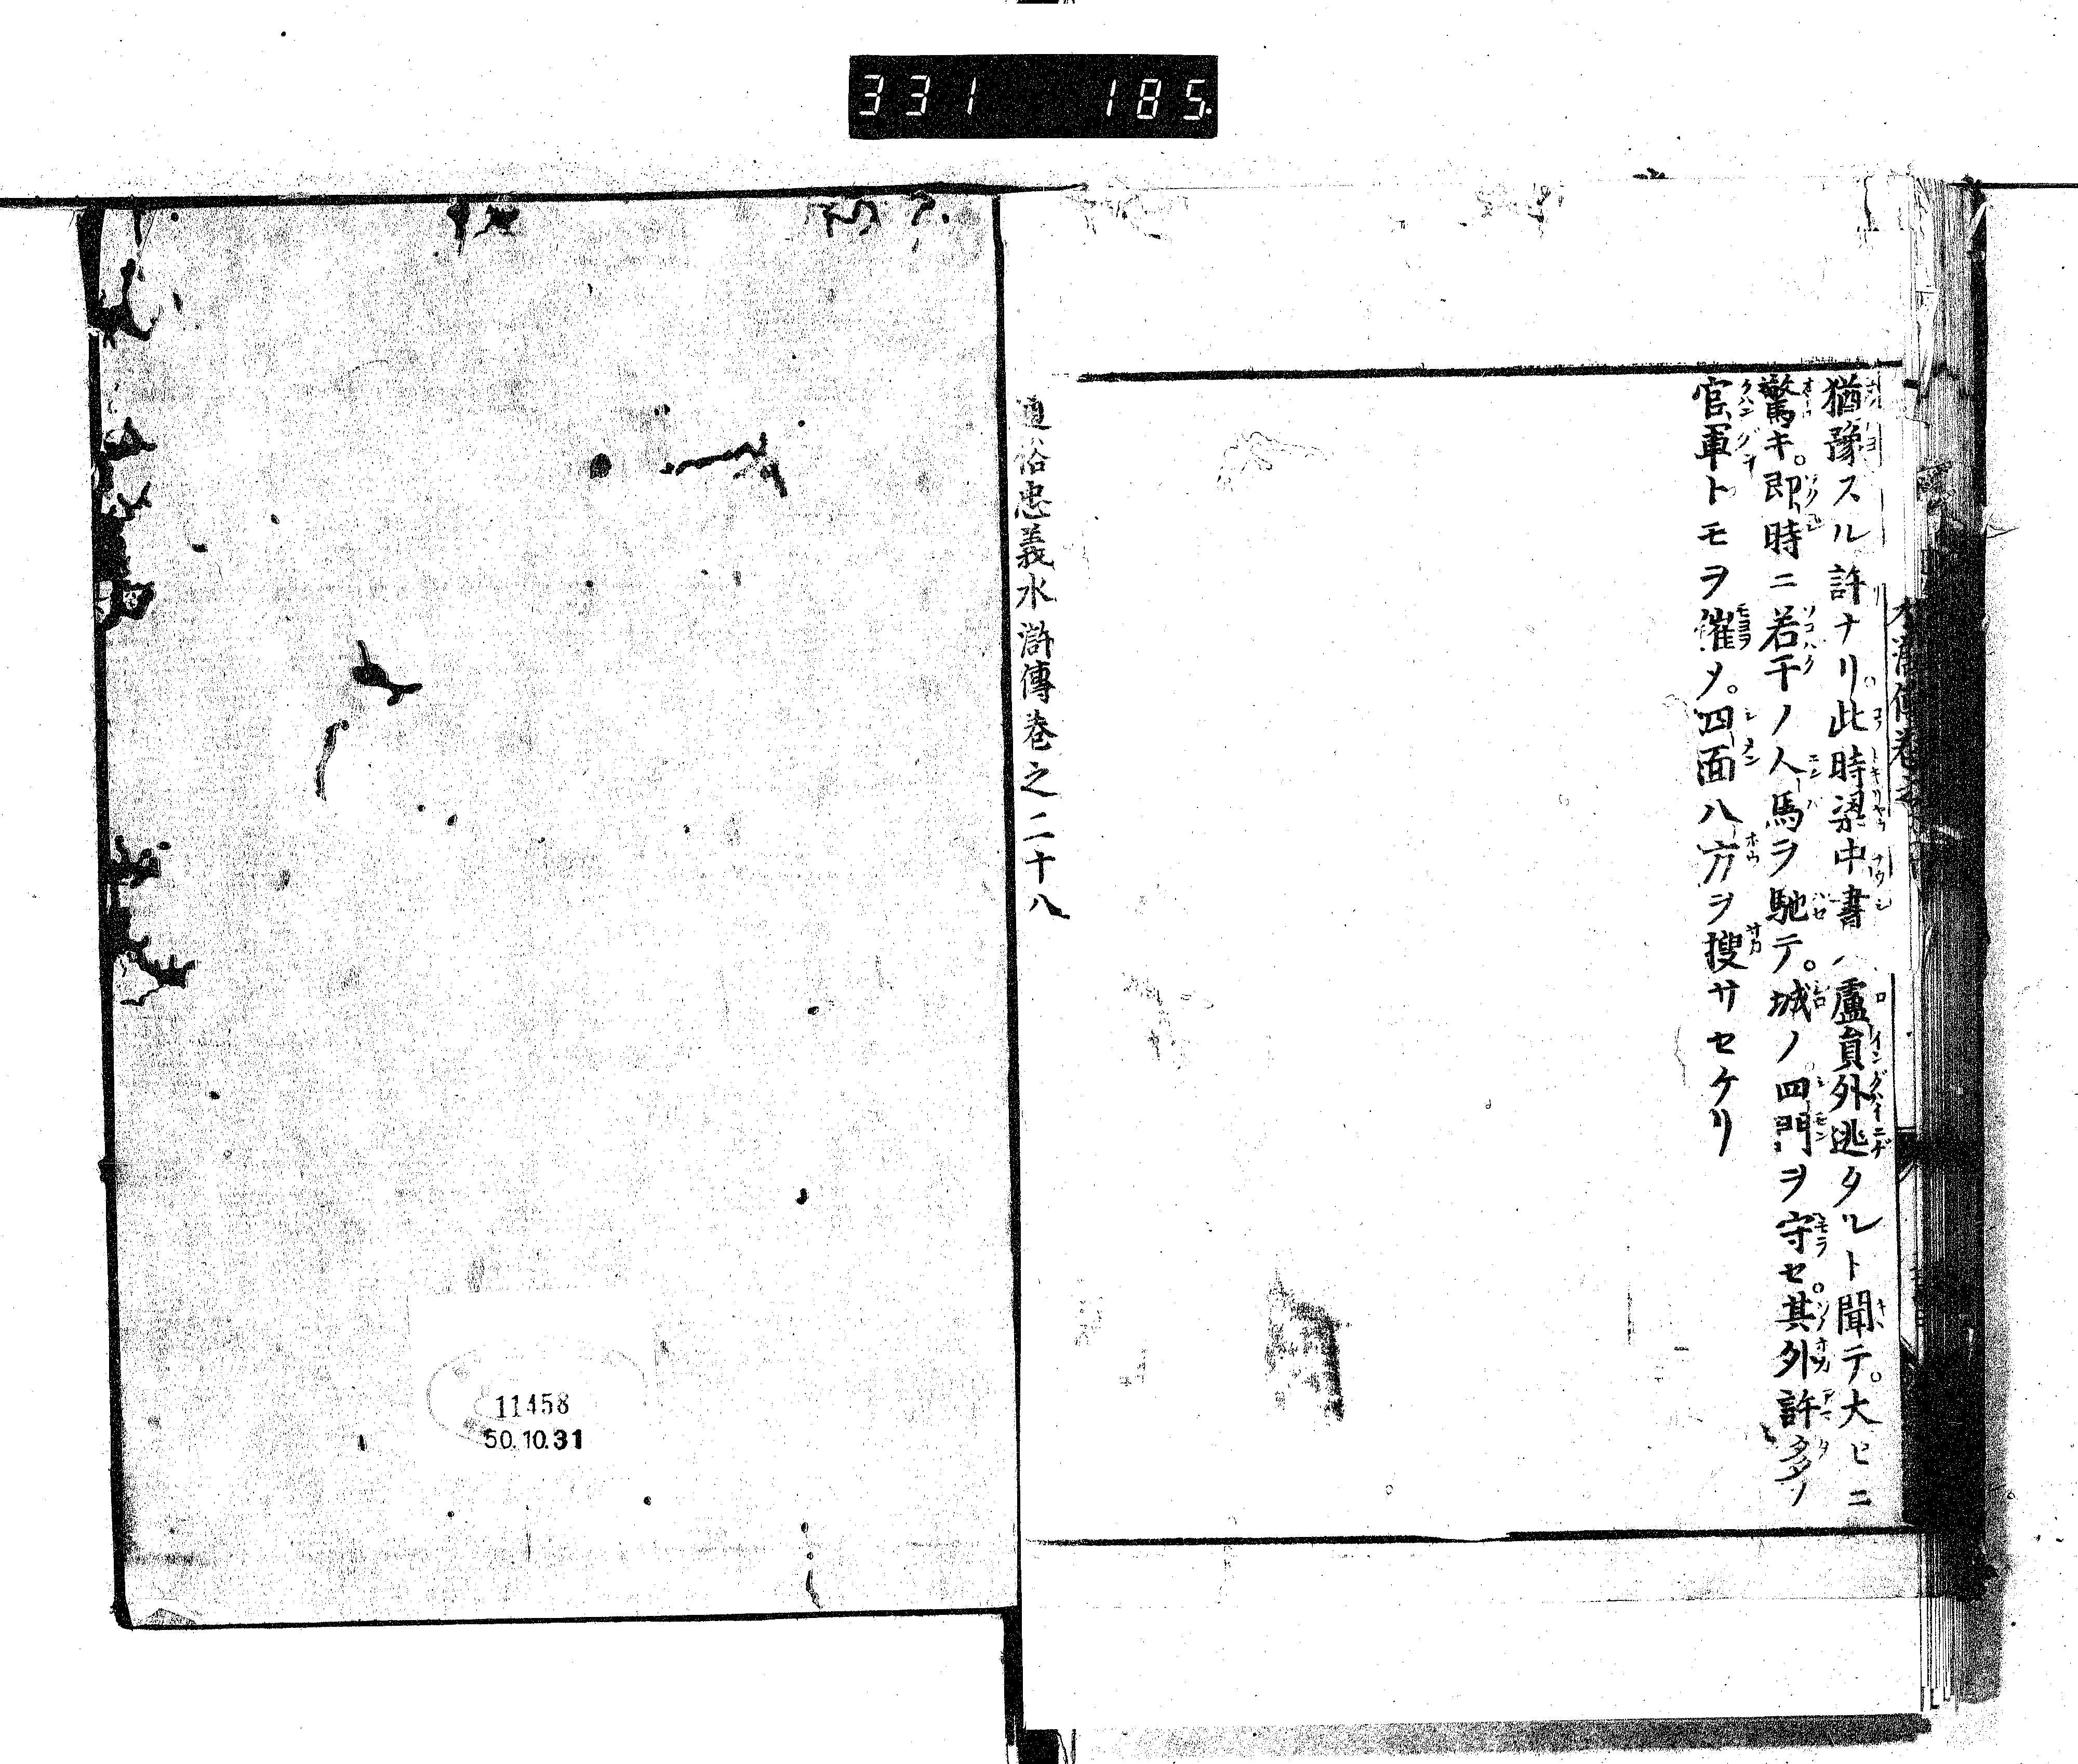 331 185.
猶豫スル許ナリ。此時梁中書ハ盧員外逃タルト聞テ。大ヒニ
驚キ。即時ニ若干ノ人馬ヲ馳テ。城ノ四門ヲ守セ。其外許多ノ
官軍トモヲ催メ。四面八方ヲ搜サセケリ
通俗忠義水滸傳卷之二十八
11458
50.10.31